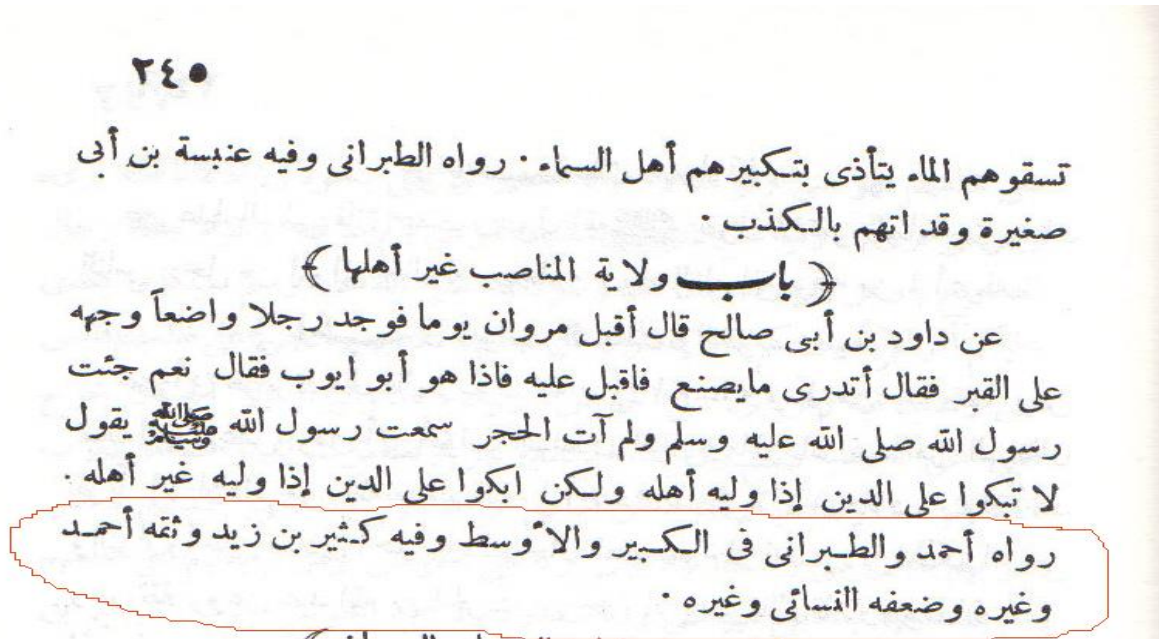 ٢٤٥
تسقوهم الماء يتأذى بتكبيرهم أهل السماء . رواه الطبرانى وفيه عنبسة بن أبى
صغيرة وقد اتهم بالكذب .
﴿ باب ولاية المناصب غير أهلها ﴾
عن داود بن أبى صالح قال أقبل مروان يوما فوجد رجلا واضعاً وجهه
على القبر فقال أتدرى مايصنع فاقبل عليه فاذا هو أبو ايوب فقال نعم جئت
رسول الله صلى الله عليه وسلم ولم آت الحجر سمعت رسول الله ﷺ يقول
لا تبكوا على الدين إذا وليه أهله ولكن ابكوا على الدين إذا وليه غير أهله .
رواه أحمد والطبرانى فى الكبير والأوسط وفيه كثير بن زيد وثقه أحمد
وغيره وضعفه النسائى وغيره .